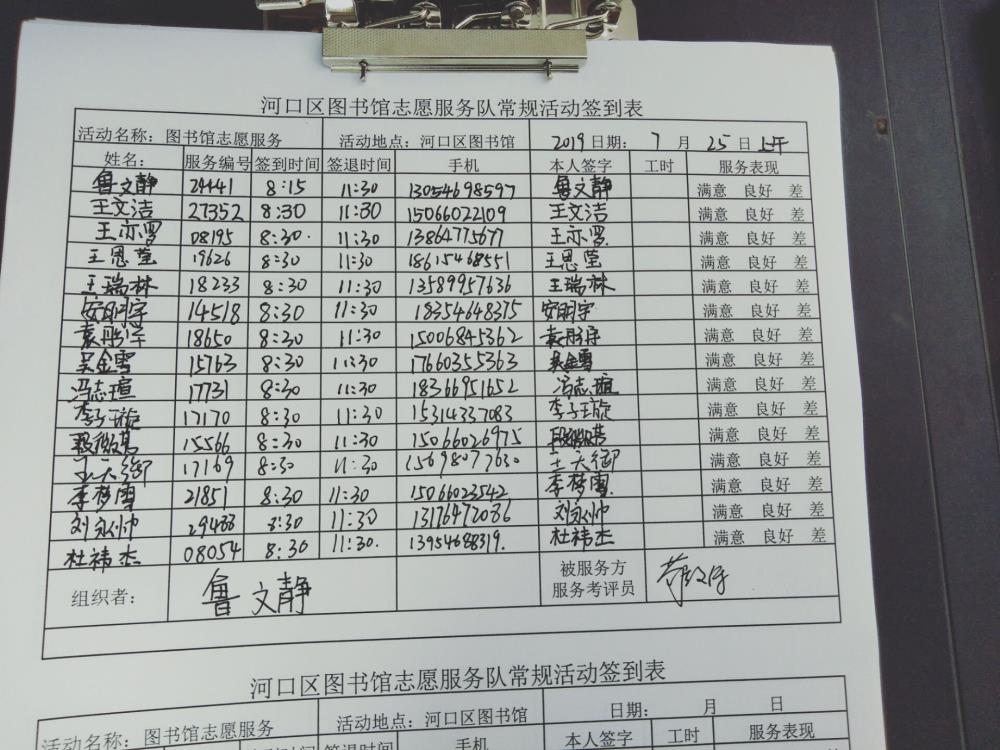 河口区图书馆志愿服务队常规活动签到表
活动名称：图书馆志愿服务 活动地点：河口区图书馆 2019日期：7月25日上午
姓名： 服务编号 签到时间 签退时间 手机 本人签字 工时 服务表现
鲁文静 24441 8:15 11:30 13054698597 鲁文静 满意 良好 差
王文洁 27352 8:30 11:30 15066022109 王文洁 满意 良好 差
王亦 08195 8:30. 11:30 13864775677 王亦 满意 良好 差
王恩莹 19626 8:30 11:30 18615468551 王恩莹 满意 良好 差
王瑞林 18233 8:30 11:30 13589957636 王瑞林 满意 良好 差
安明宇 14518 8:30 11:30 18354648375 安明宇 满意 良好 差
袁 18650 8:30 11:30 15006845362 袁 满意 良好 差
吴金雪 15763 8:30 11:30 17660355363 吴金雪 满意 良好 差
冯志瑄 17731 8:30 11:30 18366951652 冯志瑄 满意 良好 差
李子璇 17170 8:30 11:30 15314337083 李子璇 满意 良好 差
15566 8:30 11:30 15066026975 满意 良好 差
王天御 17169 8:30 11:30 15698077630 王天御 满意 良好 差
李梦雪 21851 8:30 11:30 15066023542 李梦雪 满意 良好 差
刘永帅 29488 8:30 11:30 13176472086 刘永帅 满意 良好 差
杜祎杰 08054 8:30 11:30. 13954688319. 杜祎杰 满意 良好 差
组织者： 鲁文静 被服务方
服务考评员
河口区图书馆志愿服务队常规活动签到表
活动名称：图书馆志愿服务 活动地点：河口区图书馆 日期： 月 日
签退时间 手机 本人签字 工时 服务表现